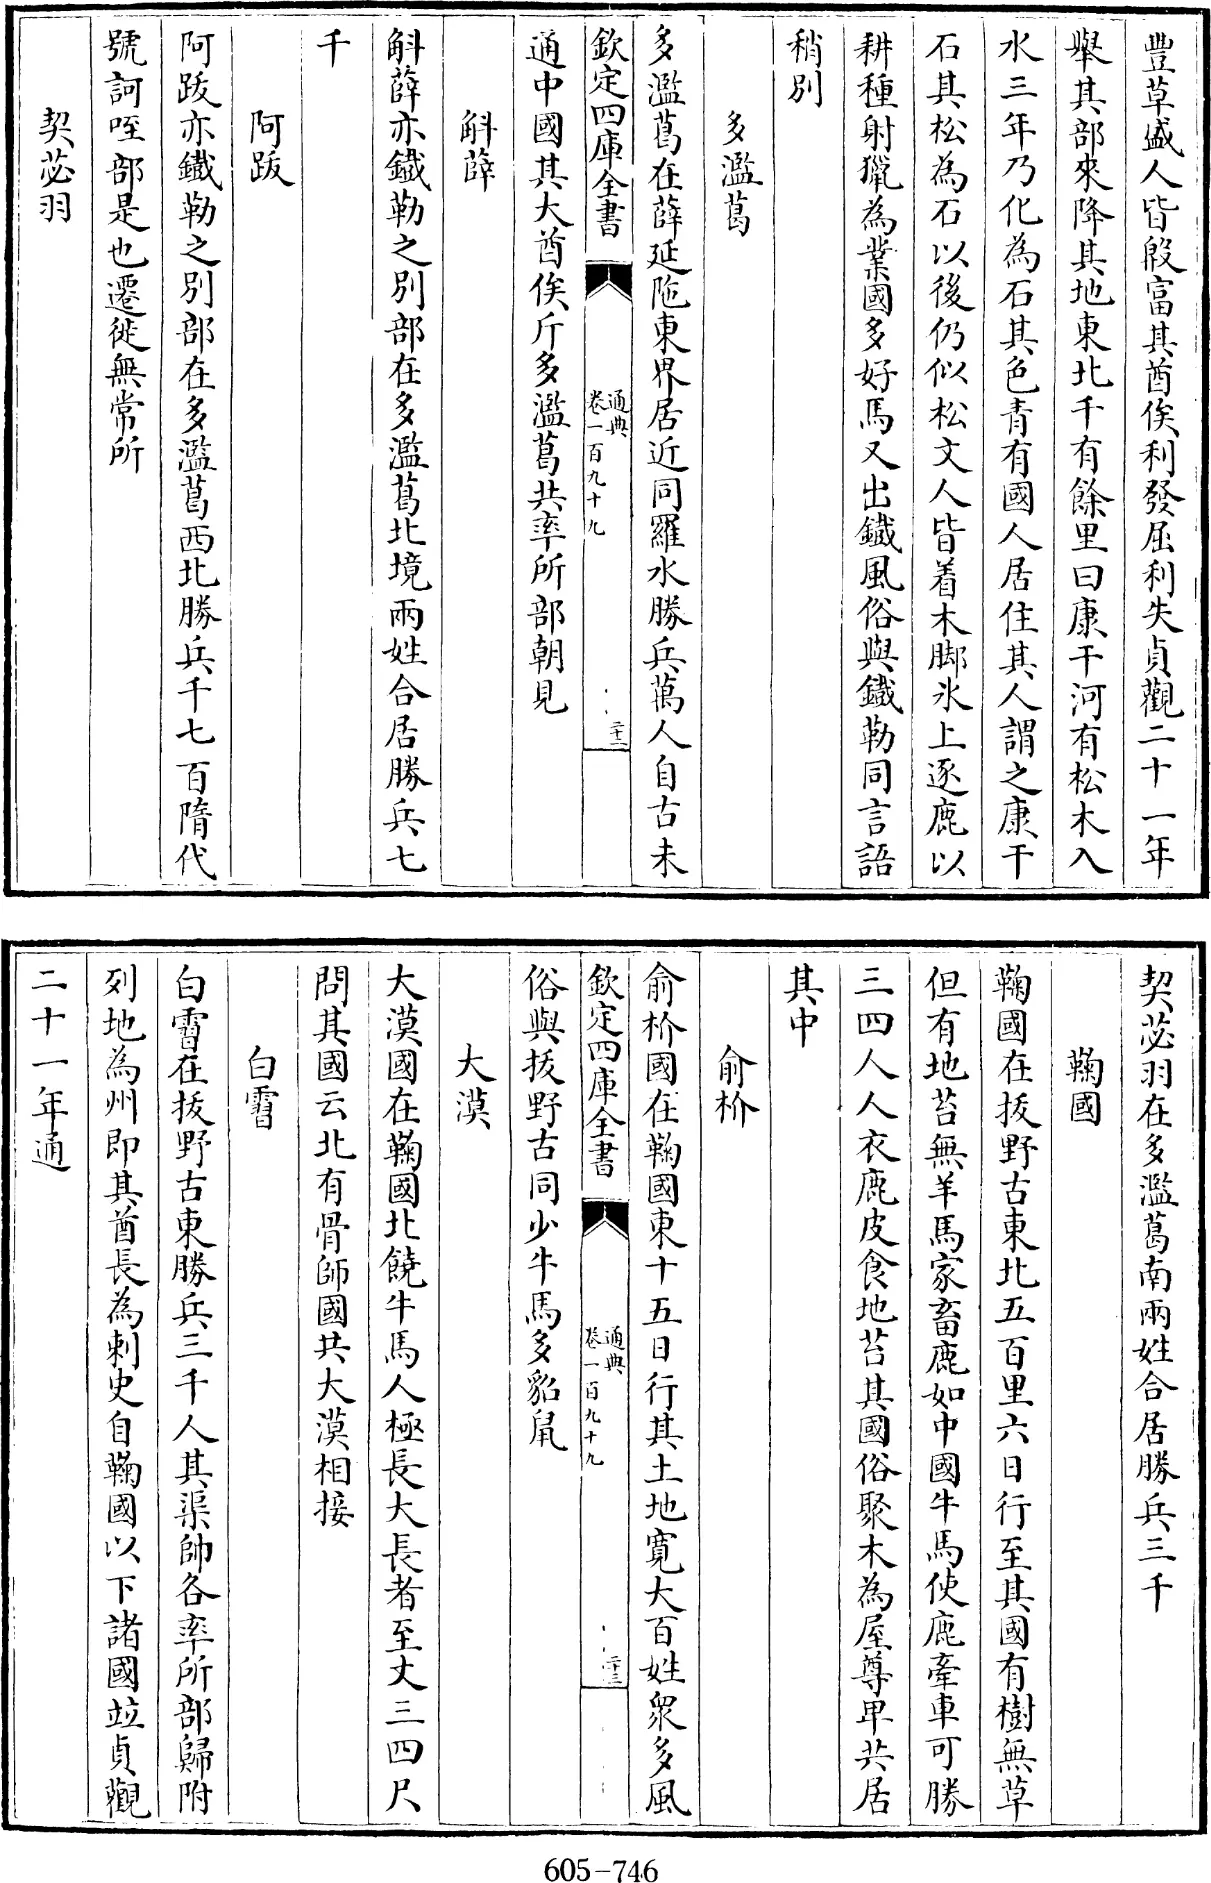 豐草盛人皆殷富其酋俟利發屈利失貞觀二十一年
舉其部來降其地東北千有餘里曰康干河有松木入
水三年乃化為石其色青有國人居住其人謂之康干
石其松為石以後仍似松文人皆着木脚氷上逐鹿以
耕種射獵為業國多好馬又出鐵風俗與鐵勒同言語
稍別
多濫葛
多濫葛在薛延陁東界居近同羅水勝兵萬人自古未
欽定四庫全書
通典
卷一百九十九
二十二
通中國其大酋俟斤多濫葛共率所部朝見
斛薛
斛薛亦鐵勒之別部在多濫葛北境兩姓合居勝兵七
千
阿跋
阿跋亦鐵勒之別部在多濫葛西北勝兵千七百隋代
號訶咥部是也遷徙無常所
契苾羽
契苾羽在多濫葛南兩姓合居勝兵三千
鞠國
鞠國在拔野古東北五百里六日行至其國有樹無草
但有地苔無羊馬家畜鹿如中國牛馬使鹿牽車可勝
三四人人衣鹿皮食地苔其國俗聚木為屋尊卑共居
其中
俞枡
俞枡國在鞠國東十五日行其土地寬大百姓衆多風
欽定四庫全書
通典
卷一百九十九
二十三
俗與拔野古同少牛馬多貂鼠
大漠
大漠國在鞠國北饒牛馬人極長大長者至丈三四尺
問其國云北有骨師國共大漠相接
白霫
白霫在拔野古東勝兵三千人其渠帥各率所部歸附
列地為州即其酋長為刺史自鞠國以下諸國竝貞觀
二十一年通
605-746